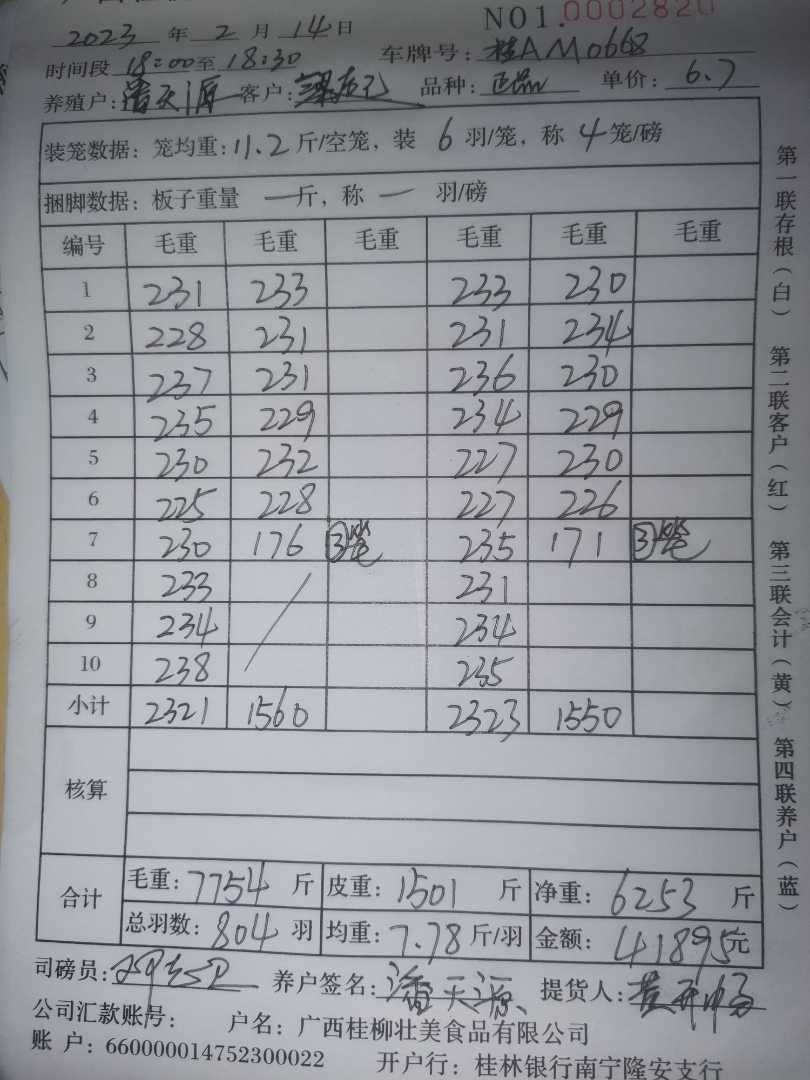 NO1.0002820
2023 年 2 月 14 日
时间段 18:00至18:30 车牌号: 桂AM0668
养殖户: 潘天源 客户: 品种: 正品 单价: 6.7
装笼数据: 笼均重: 11.2 斤/空笼, 装 6 羽/笼, 称 4 笼/磅
捆脚数据: 板子重量 一 斤, 称 一 羽/磅
编号 毛重 毛重 毛重 毛重 毛重 毛重
1 231 233 233 230
2 228 231 231 234
3 237 231 236 230
4 235 229 234 229
5 230 232 227 230
6 225 228 227 226
7 230 176 ③笼 235 171 ③笼
8 233 231
9 234 234
10 238 235
小计 2321 1560 2323 1550
核算
合计 毛重: 7754 斤 皮重: 1501 斤 净重: 6253 斤
总羽数: 804 羽 均重: 7.78 斤/羽 金额: 41895元
司磅员: 养户签名: 潘天源 提货人:
公司汇款账号: 户名: 广西桂柳壮美食品有限公司
账 户: 660000014752300022 开户行: 桂林银行南宁隆安支行
第一联存根(白) 第二联客户(红) 第三联会计(黄) 第四联养户(蓝)